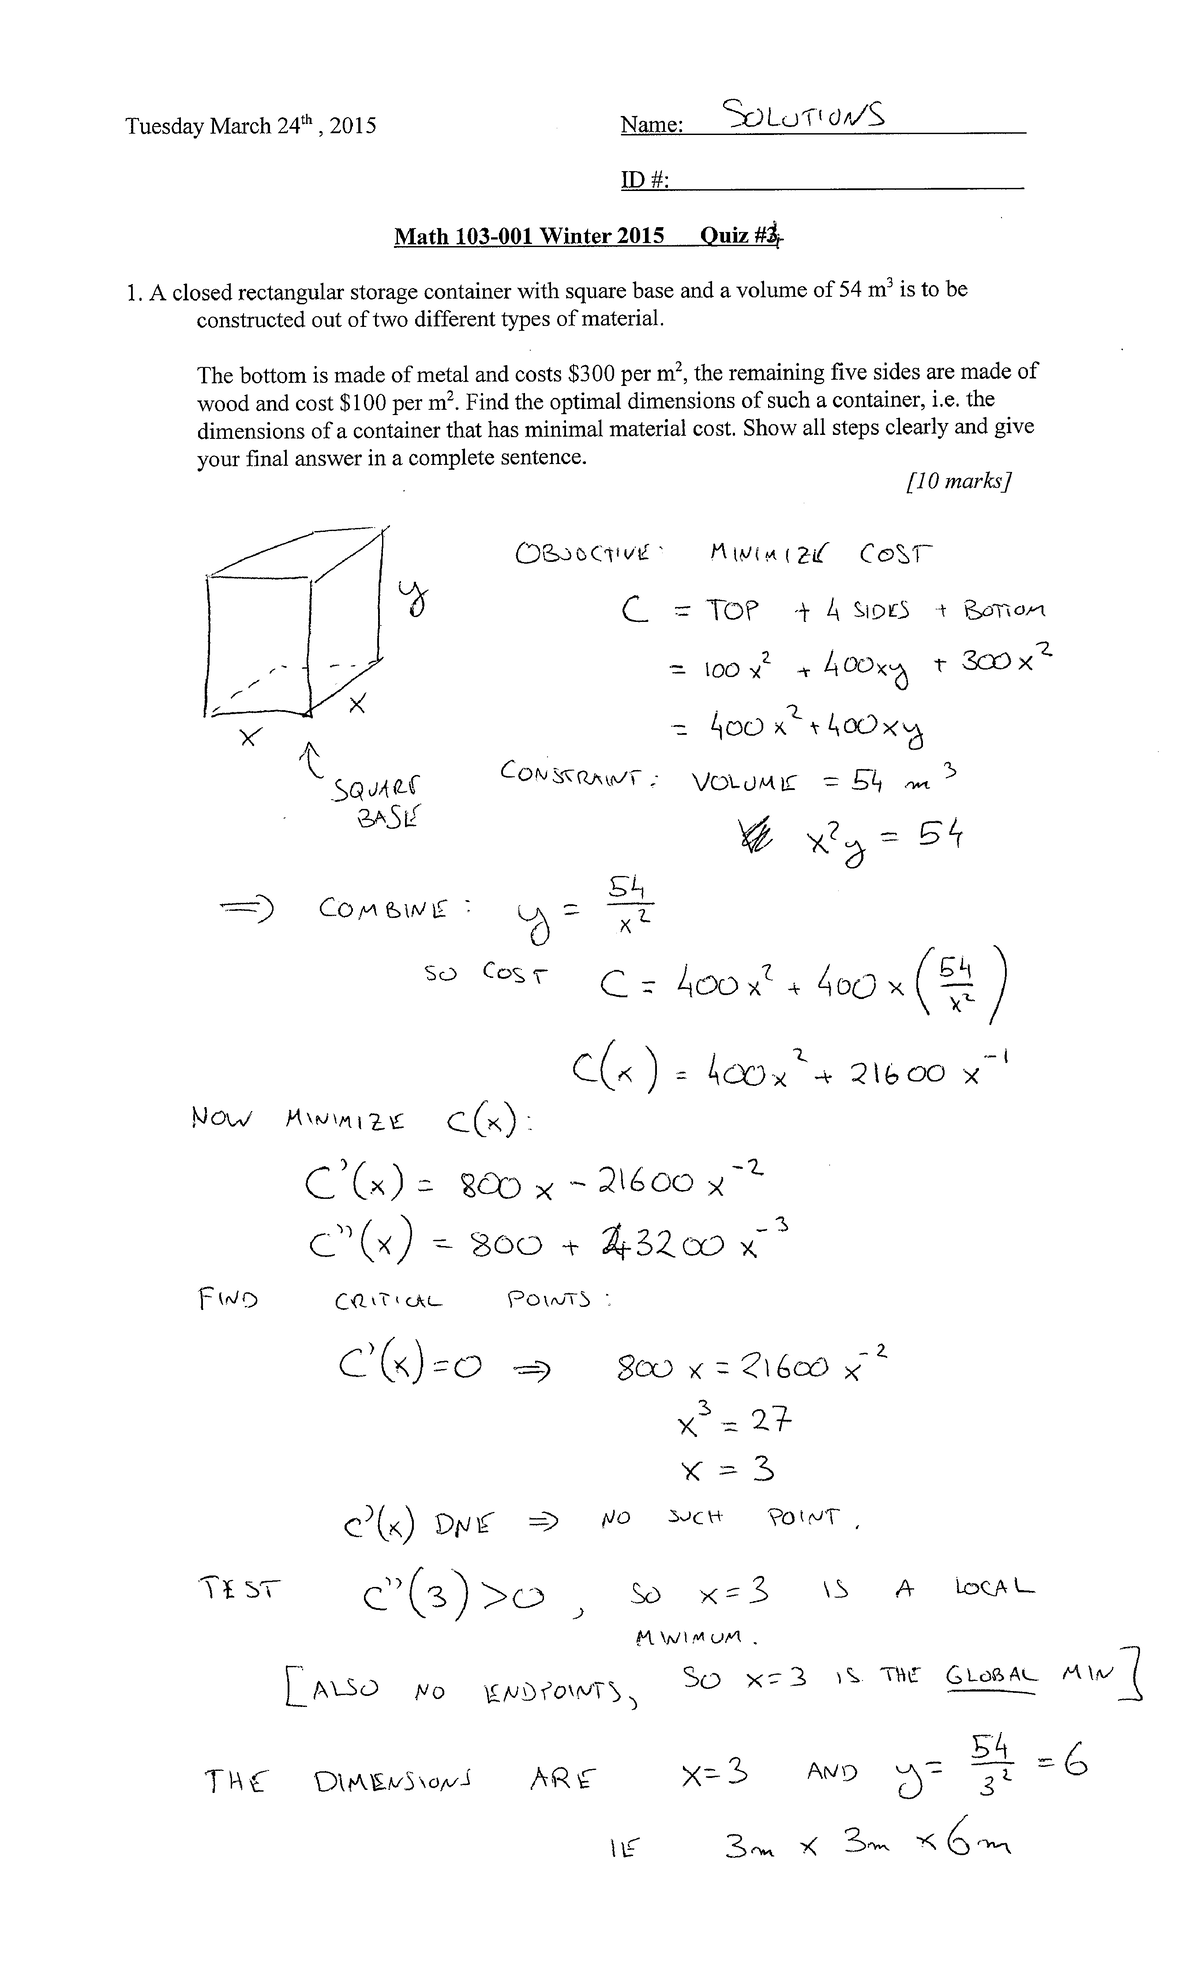 Tuesday March 24th , 2015 Name: SOLUTIONS
ID #:
Math 103-001 Winter 2015 Quiz #4
1. A closed rectangular storage container with square base and a volume of 54 m³ is to be
constructed out of two different types of material.
The bottom is made of metal and costs $300 per m², the remaining five sides are made of
wood and cost $100 per m². Find the optimal dimensions of such a container, i.e. the
dimensions of a container that has minimal material cost. Show all steps clearly and give
your final answer in a complete sentence.
[10 marks]
y
x
x
↑
SQUARE
BASE
OBJECTIVE: MINIMIZE COST
C = TOP + 4 SIDES + BOTTOM
= 100x² + 400xy + 300x²
= 400x² + 400xy
CONSTRAINT: VOLUME = 54 m³
x²y = 54
⇒ COMBINE: y = 54/x²
SO COST C = 400x² + 400x(54/x²)
C(x) = 400x² + 21600x⁻¹
NOW MINIMIZE C(x):
C'(x) = 800x - 21600x⁻²
C''(x) = 800 + 43200x⁻³
FIND CRITICAL POINTS:
C'(x)=0 ⇒ 800x = 21600x⁻²
x³ = 27
x = 3
C'(x) DNE ⇒ NO SUCH POINT.
TEST C''(3)>0, SO x=3 IS A LOCAL
MINIMUM.
[ALSO NO ENDPOINTS, SO x=3 IS THE GLOBAL MIN]
THE DIMENSIONS ARE x=3 AND y= 54/3² = 6
IE 3m x 3m x 6m